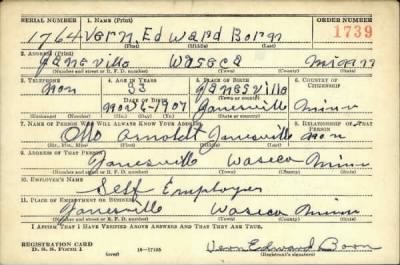 SERIAL NUMBER 1. NAME (Print) ORDER NUMBER
1764 Vern Edward Born 1739
(First) (Middle) (Last)
2. ADDRESS (Print)
Janesville Waseca Minn
(Number and street or R. F. D. number) (Town) (County) (State)
3. TELEPHONE 4. AGE IN YEARS 5. PLACE OF BIRTH 6. COUNTRY OF CITIZENSHIP
non 33 Janesville
DATE OF BIRTH (Town or county)
Nov 6-1907 Janesville Minn
7. NAME OF PERSON WHO WILL ALWAYS KNOW YOUR ADDRESS 8. RELATIONSHIP OF THAT PERSON
Otto Arnoldt Janesville non
(Mr., Mrs., Miss) (First) (Middle) (Last)
9. ADDRESS OF THAT PERSON
Janesville Waseca Minn
(Number and street or R. F. D. number) (Town) (County) (State)
10. EMPLOYER'S NAME
Self Employer
11. PLACE OF EMPLOYMENT OR BUSINESS
Janesville Waseca Minn
(Number and street or R. F. D. number) (Town) (County) (State)
I AFFIRM THAT I HAVE VERIFIED ABOVE ANSWERS AND THAT THEY ARE TRUE.
REGISTRATION CARD
D. S. S. Form 1 (over) Vern Edward Born
(Registrant's signature)